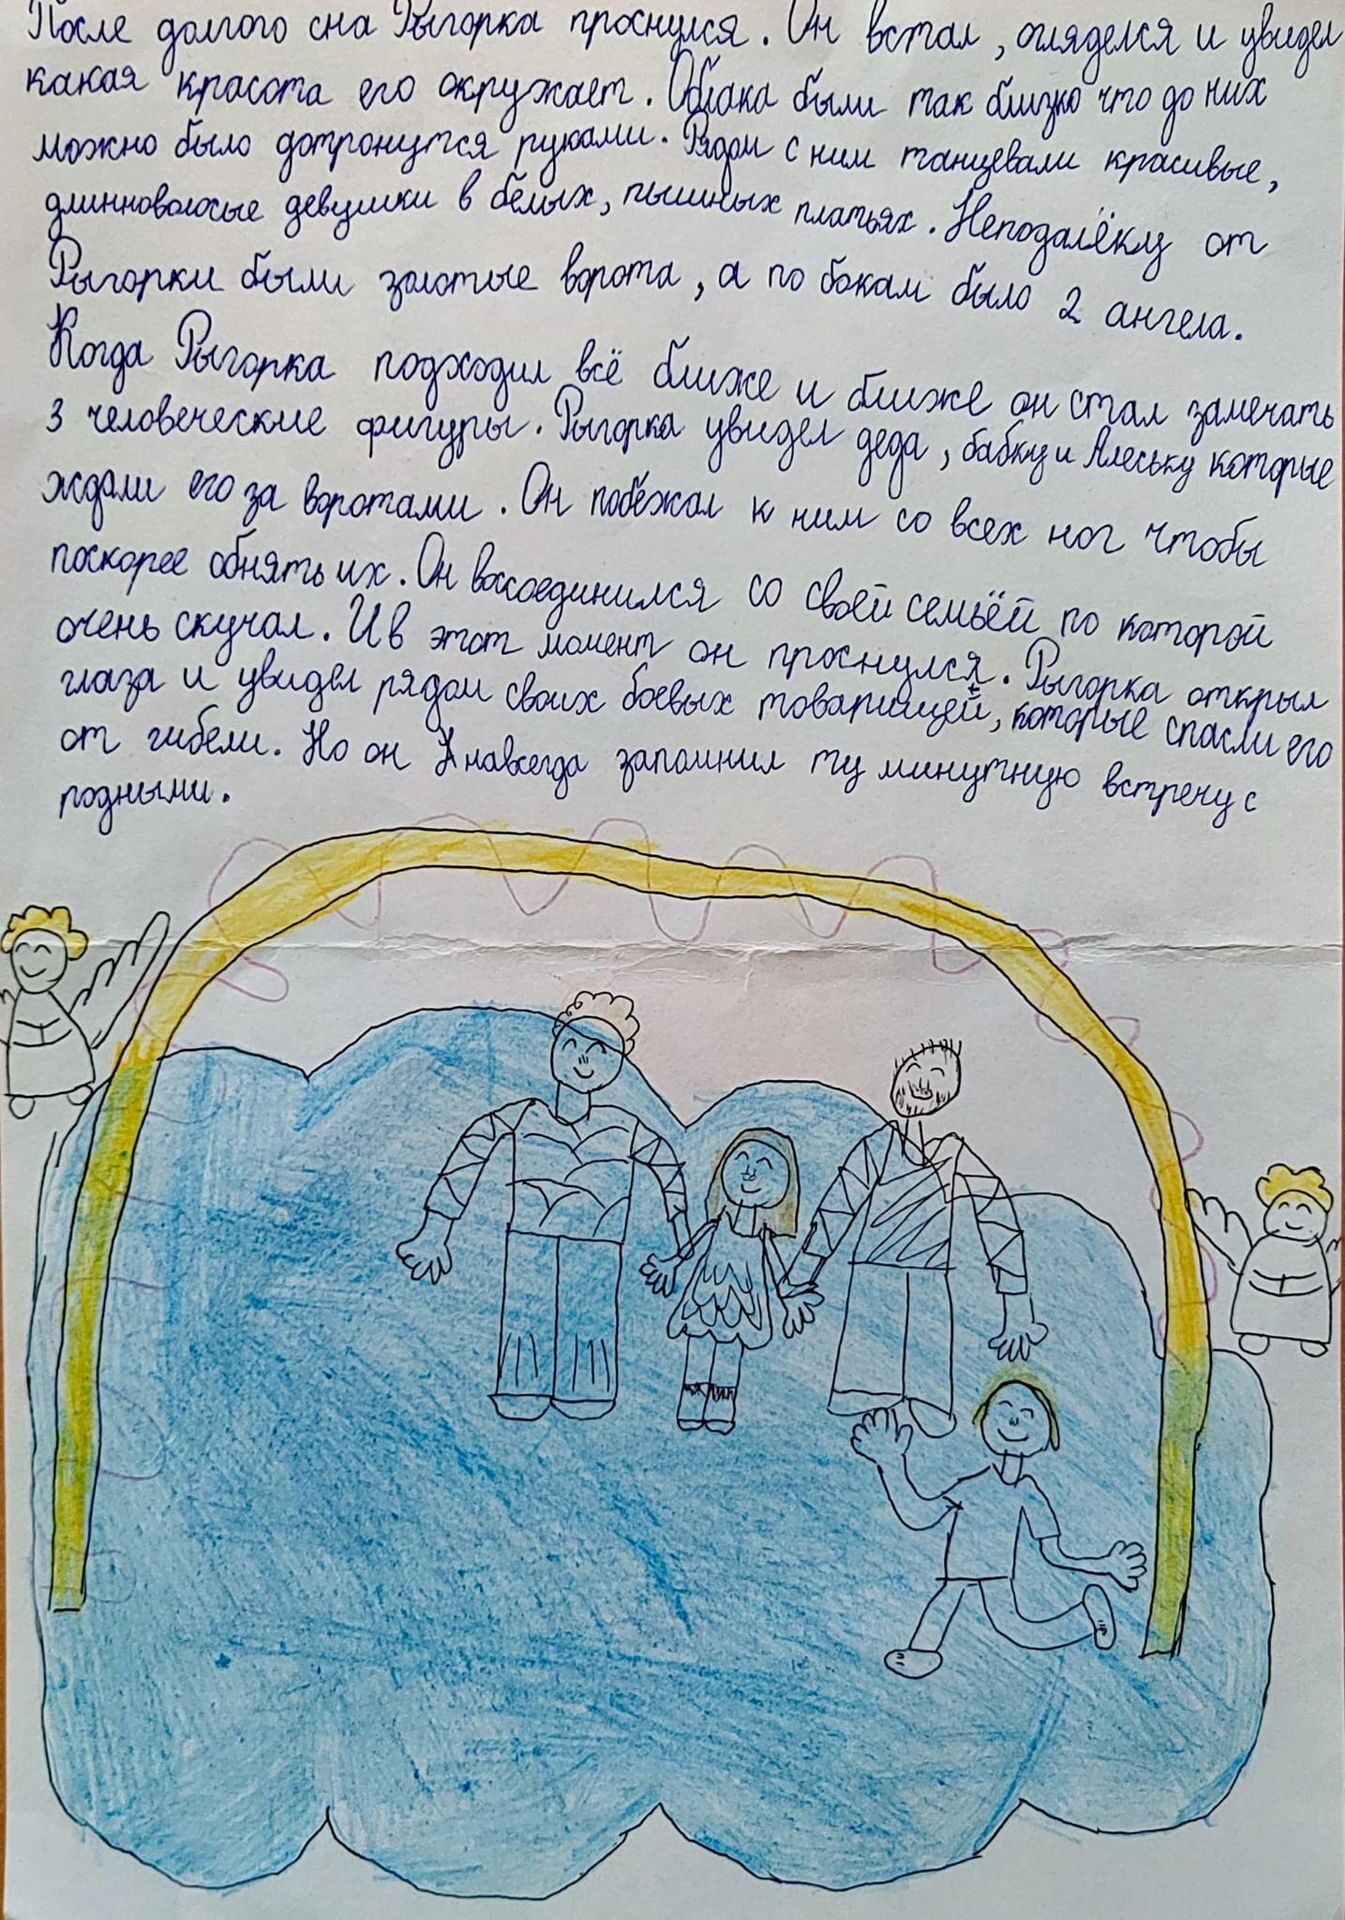 После долгого сна Рыгорка проснулся. Он встал, огляделся и увидел
какая красота его окружает. Облака были так близко что до них
можно было дотронутся руками. Рядом с ним танцевали красивые,
длинноволосые девушки в белых, пышных платьях. Неподалёку от
Рыгорки были золотые ворота, а по бокам было 2 ангела.
Когда Рыгорка подходил всё ближе и ближе он стал замечать
3 человеческие фигуры. Рыгорка увидел деда, бабку и Алеську которые
ждали его за воротами. Он побежал к ним со всех ног чтобы
поскорее обнять их. Он воссоединился со своей семьёй по которой
очень скучал. И в этот момент он проснулся. Рыгорка открыл
глаза и увидел рядом своих боевых товарищей, которые спасли его
от гибели. Но он навсегда запомнил ту минутную встречу с
родными.